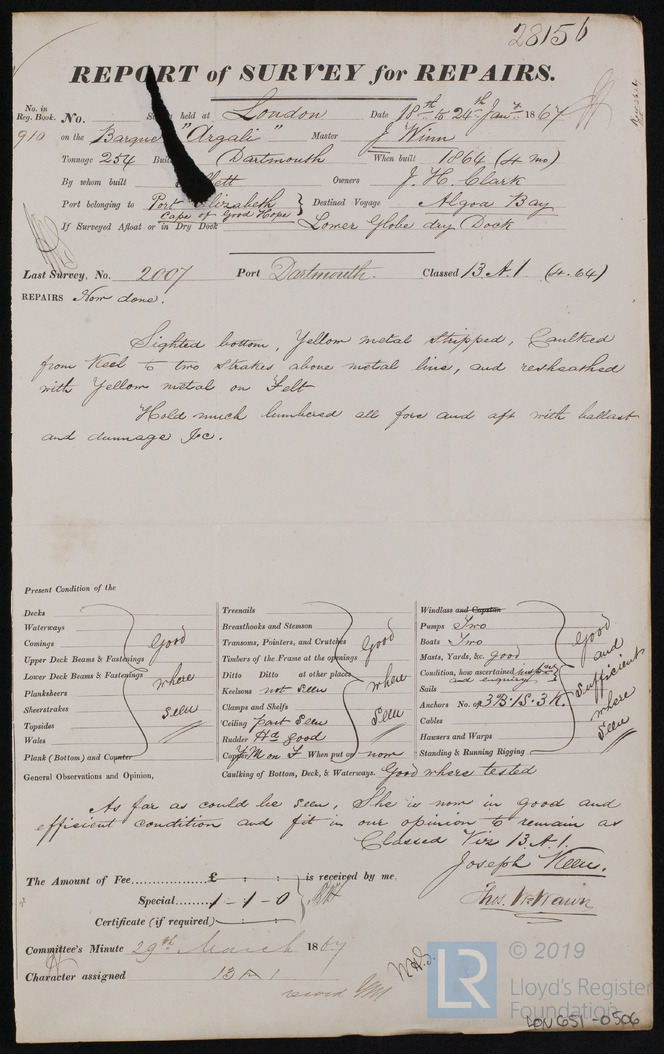 28156
REPORT of SURVEY for REPAIRS.
No. in Reg. Book. No. held at London Date 18th to 24th Jany. 1867
910 on the Barque "Argali" Master J Winn
Tonnage 254 Dartmouth When built 1864 (4 mo)
By whom built Owners J. H. Clark
Port belonging to Port Elizabeth } Destined Voyage Algoa Bay
Cape of Good Hope
If Surveyed Afloat or in Dry Dock Lower Globe dry Dock
Last Survey, No. 2007 Port Dartmouth. Classed 13 A.1 (4.64)
REPAIRS Now done.
Sighted bottom, Yellow metal stripped, Caulked
from Keel to two strakes above metal line, and resheathed
with Yellow metal on Felt
Hold much lumbered all fore and aft with ballast
and dunnage &c.
Present Condition of the
Decks
Waterways
Comings
Upper Deck Beams & Fastenings
Lower Deck Beams & Fastenings
Planksheers
Sheerstrakes
Topsides
Wales
Plank (Bottom) and Counter
Good
where
seen
Treenails
Breasthooks and Stemson
Transoms, Pointers, and Crutches
Timbers of the Frame at the openings
Ditto Ditto at other places
Keelsons not seen
Clamps and Shelfs
Ceiling part seen
Rudder Hd good
Copper Y M on F When put on now
Caulking of Bottom, Deck, & Waterways. Good where tested
Good
where
seen
Windlass and Capstan
Pumps Two
Boats Two
Masts, Yards, &c. good
Condition, how ascertained
and enquiry
Sails
Anchors No. of 3 B. 1 S. 3 K.
Cables
Hawsers and Warps
Standing & Running Rigging
Good
and
sufficient
where
seen
General Observations and Opinion,
As far as could be seen, She is now in good and
efficient condition and fit in our opinion to remain as
Classed Viz 13 A.1.
Joseph Keen.
The Amount of Fee £ : : is received by me,
Special 1-1-0
Certificate (if required) : :
Committee's Minute 29th March 1867
Character assigned 13 A 1
record
LR
© 2019
Lloyd's Register
Foundation
LON 651-0506